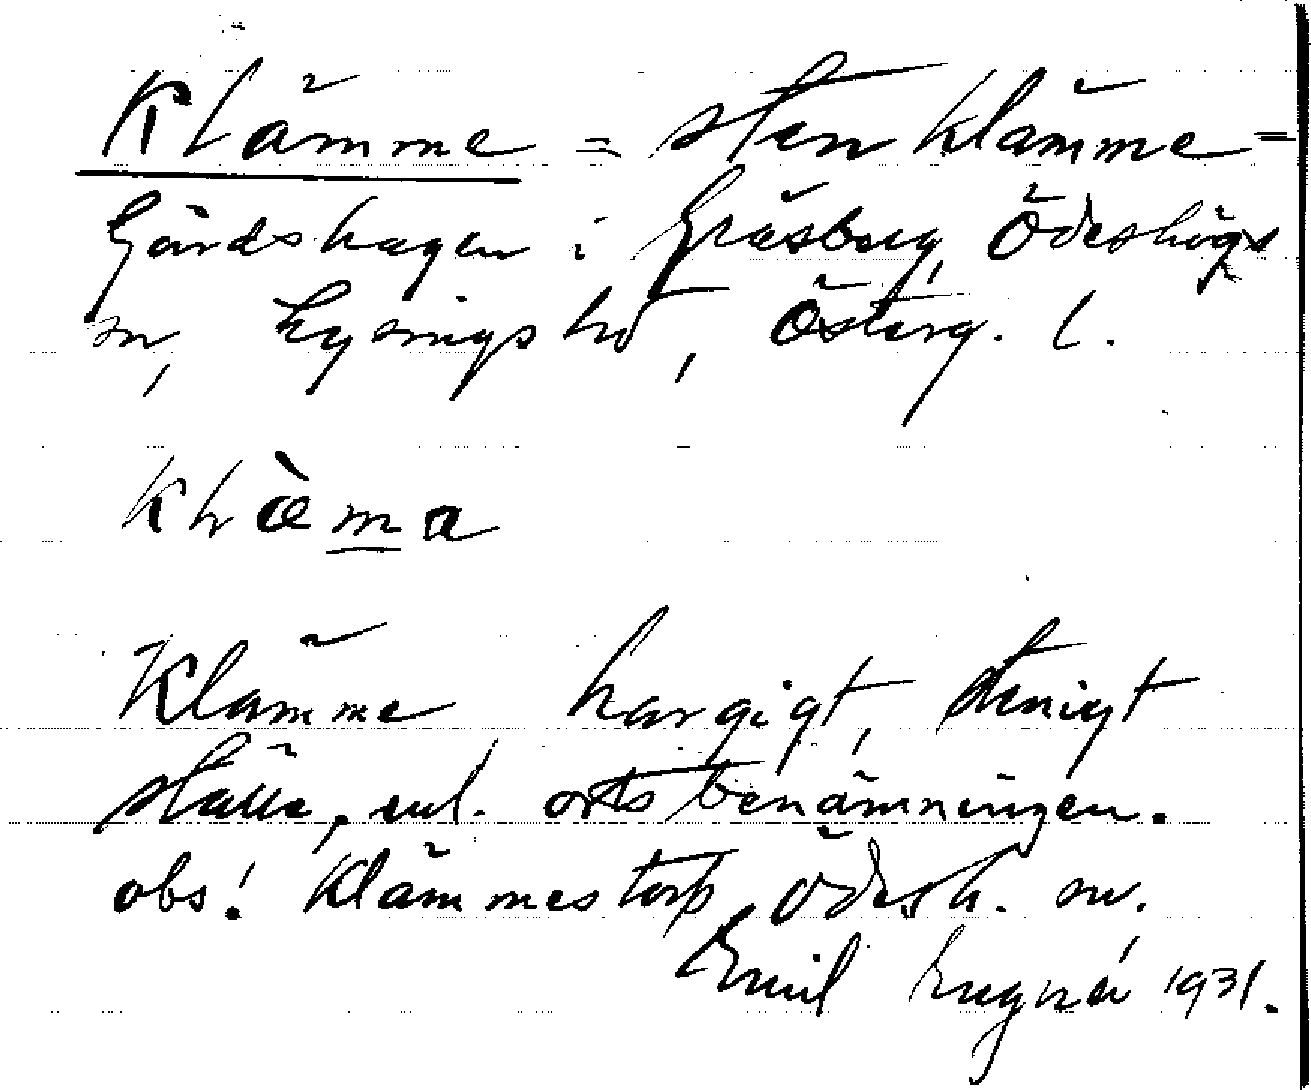 Klämme = stenklämme=
Gårdshagen i Gräsberg, Ödeshögs
sn, Lysings hd, Österg. l.
Klämma
Klämme hargigt, stenigt
ställe, enl. ortsbenämningen.
obs! Klämmestorp, Ödesh. sn.
Emil 1931.